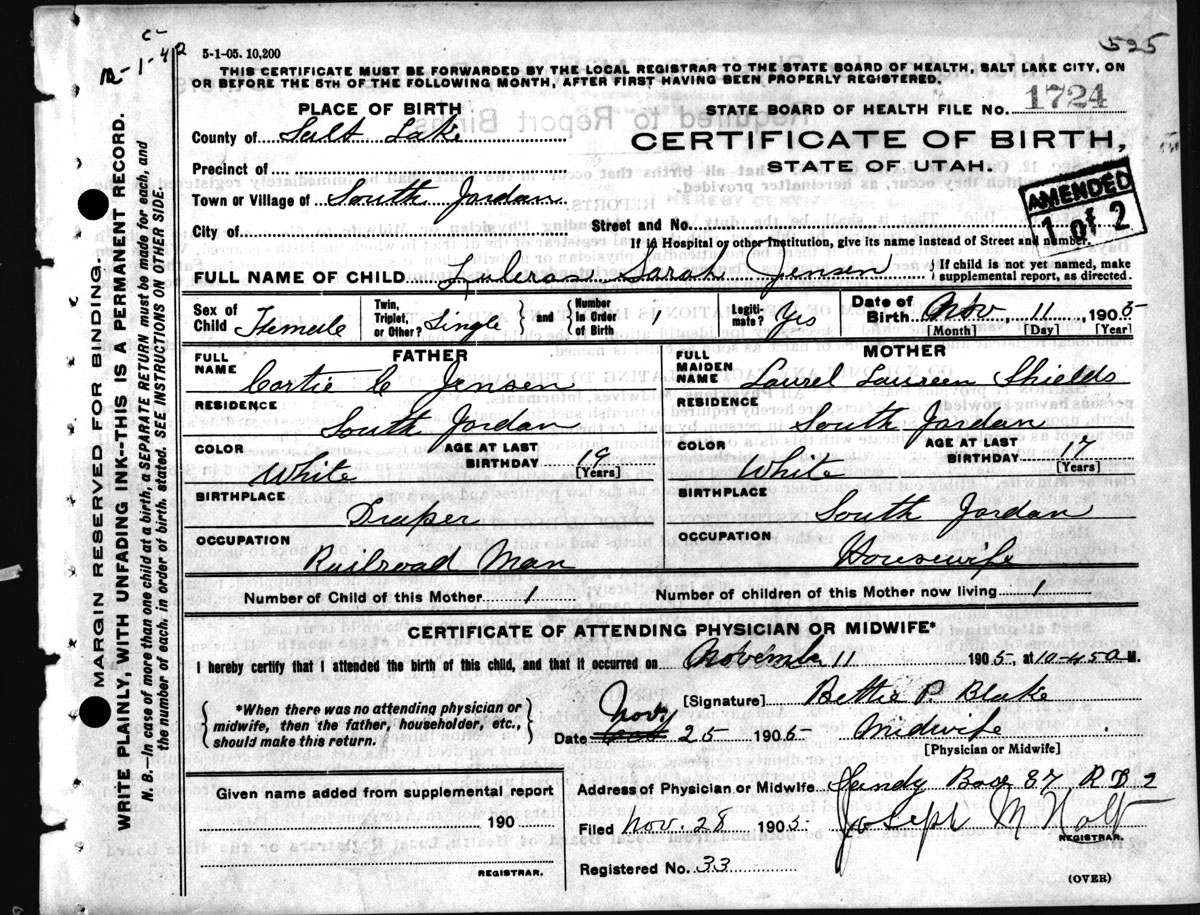 C-
1-42
5-1-05. 10,200
525
THIS CERTIFICATE MUST BE FORWARDED BY THE LOCAL REGISTRAR TO THE STATE BOARD OF HEALTH, SALT LAKE CITY, ON
OR BEFORE THE 5TH OF THE FOLLOWING MONTH, AFTER FIRST HAVING BEEN PROPERLY REGISTERED.
PLACE OF BIRTH
STATE BOARD OF HEALTH FILE No. 1724
County of Salt Lake
CERTIFICATE OF BIRTH,
STATE OF UTAH.
Precinct of
AMENDED
1 of 2
Town or Village of South Jordan
City of
Street and No.
If in Hospital or other Institution, give its name instead of Street and number.
FULL NAME OF CHILD Sarah Jensen { If child is not yet named, make
supplemental report, as directed.
Sex of
Child Female
Twin,
Triplet,
or Other? Single } and { Number
in Order
of Birth
Legiti-
mate? Yes
Date of
Birth Nov, 11, 1905
[Month] [Day] [Year]
FATHER
FULL
NAME
Cortie C Jensen
RESIDENCE
South Jordan
COLOR
White
AGE AT LAST
BIRTHDAY 19
[Years]
BIRTHPLACE
Draper
OCCUPATION
Railroad Man
MOTHER
FULL
MAIDEN
NAME
Laurel Laureen Shields
RESIDENCE
South Jordan
COLOR
White
AGE AT LAST
BIRTHDAY 17
[Years]
BIRTHPLACE
South Jordan
OCCUPATION
Housewife
Number of Child of this Mother 1
Number of children of this Mother now living 1
CERTIFICATE OF ATTENDING PHYSICIAN OR MIDWIFE*
I hereby certify that I attended the birth of this child, and that it occurred on November 11 1905, at 10-45 a M.
{ *When there was no attending physician or
midwife, then the father, householder, etc.,
should make this return. }
[Signature] Bettie P. Blake
Date Nov 25 1905
Midwife
[Physician or Midwife]
Given name added from supplemental report
190
REGISTRAR.
Address of Physician or Midwife Sandy Box 87 R D 2
Filed Nov. 28 1905
Joseph M Holt
REGISTRAR.
Registered No. 33
(OVER)
MARGIN RESERVED FOR BINDING.
WRITE PLAINLY, WITH UNFADING INK--THIS IS A PERMANENT RECORD.
N. B.—In case of more than one child at a birth, a SEPARATE RETURN must be made for each, and
the number of each, in order of birth, stated. SEE INSTRUCTIONS ON OTHER SIDE.